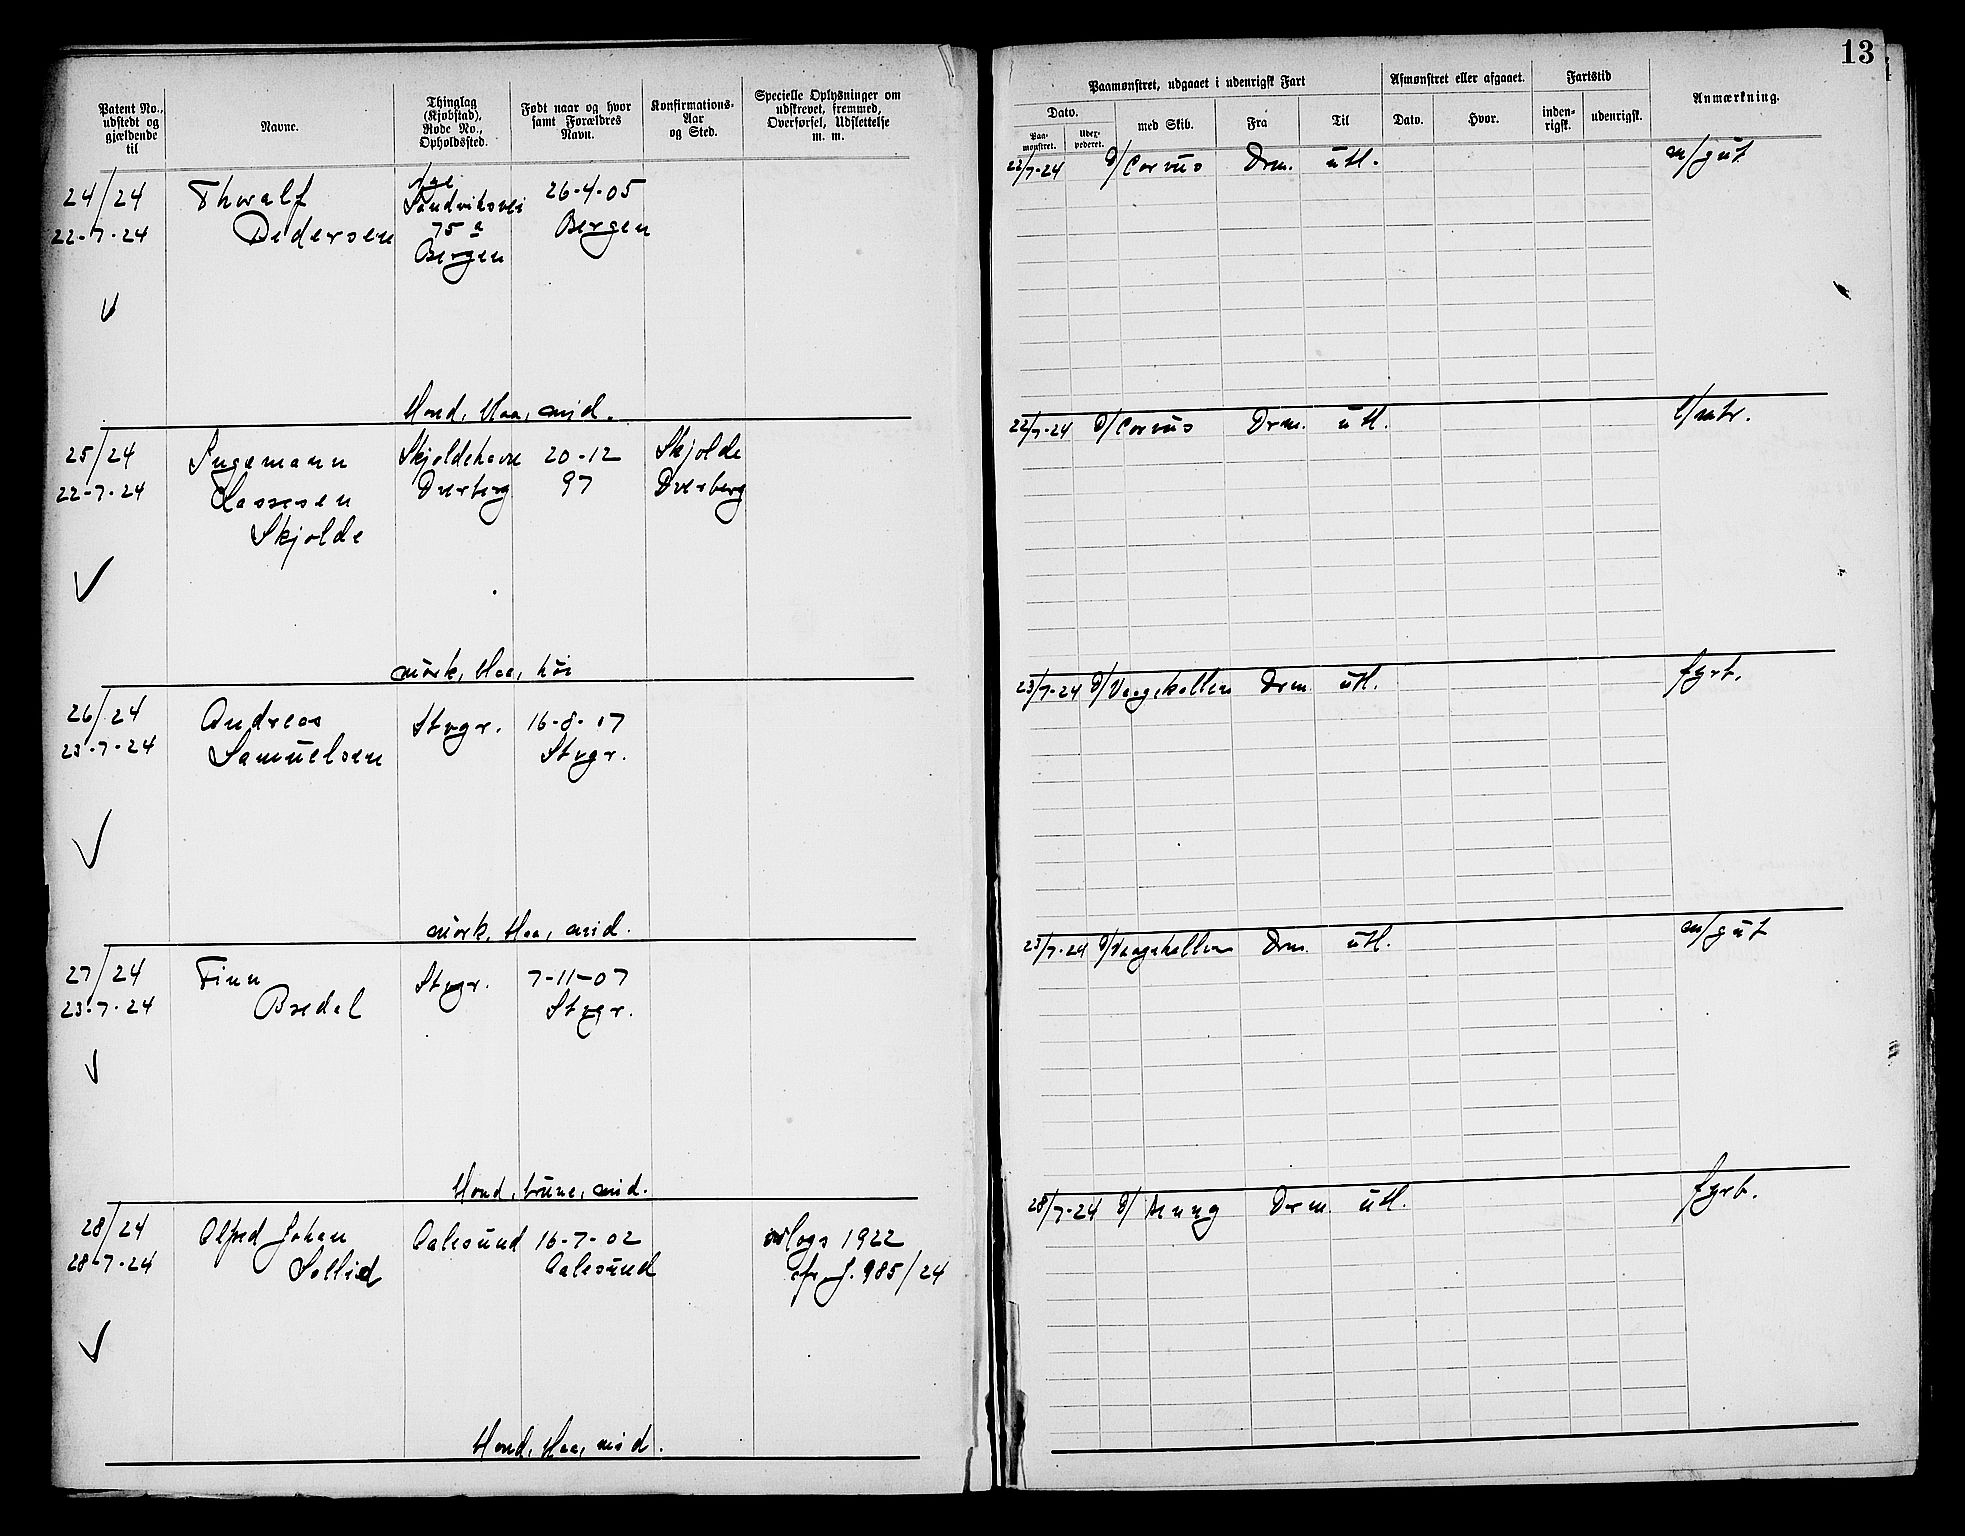 13
Patent No., udstedt og gjældende til
Navne.
Thinglag (Kjøbstad), Rode No., Opholdssted.
Født naar og hvor samt Forældres Navn.
Konfirmations-Aar og Sted.
Specielle Oplysninger om udskrevet, fremmed, Overførsel, Udslettelse m. m.
Paamønstret, udgaaet i udenrigsk Fart
Dato.
Paa-mønstret.
med Skib.
Fra
Til
Afmønstret eller afgaaet.
Dato.
Hvor.
Fartstid
inden-rigsk.
udenrigsk.
Anmærkning.
24/24 Thoralf Sandviksvei 26-4-05
22-7-24 Pedersen 75 a Bergen
Bergen
22/7-24 D/ Corvus Drm. utl. m/gut
blond, blaa, mid.
25/24 Ingemann Skjoldehavn 20-12 Skjolde
22-7-24 Classesen Dverberg 97 Dverberg
Skjolde
22/7-24 D/ Corvus Drm. utl. l/mtr.
mörk, blaa, höi
26/24 Andreas Stvgr. 16-8-07
23-7-24 Samuelsen Stvgr.
23/7-24 D/ Vaagekallen Drm. utl. fyrb.
mörk, blaa, mid.
27/24 Finn Stvgr. 7-11-07
23-7-24 Bredal Stvgr.
23/7-24 D/ Vaagekallen Drm. utl. m/gut
blond, brune, mid.
28/24 Alfred Johan Aalesund 16-7-02 orlogs 1922
28-7-24 Sollied Aalesund cfr. J. 985/24
28/7-24 D/ Drm. utl. fyrb.
blond, blaa, mid.